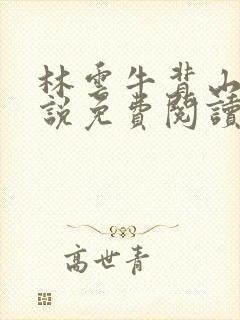 林雲牛背山
說免費閱讀
高世青